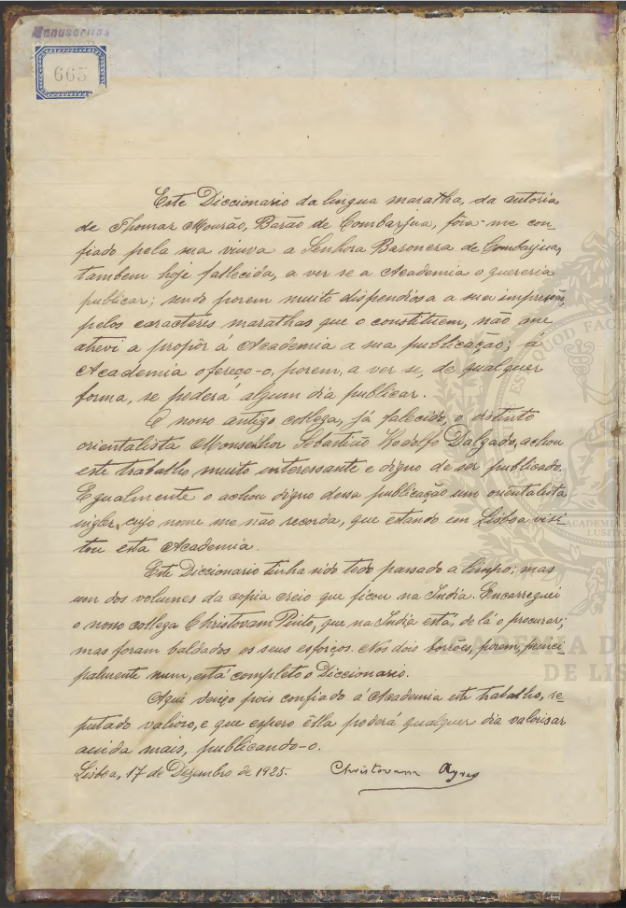 Manuscritos
665
Este Diccionario da lingua maratha, da autoria
de Thomaz Mourão, Barão de Combarjua, fôra-me con-
fiado pela sua viuva a Senhora Baroneza de Combarjua,
tambem hoje fallecida, a ver se a Academia o quereria
publicar; sendo porem muito dispendiosa a sua impressão,
pelos caractéres marathas que o constituem, não me
atrevi a propôr á Academia a sua publicação; á
Academia offereço-o, porem, a ver se, de qualquer
forma, se poderá algum dia publicar.
O nosso antigo collega, já falecido, o distinto
orientalista Monsenhor Sebastião Rodolfo Dalgado, achou
este trabalho muito interessante e digno de ser publicado.
Egualmente o achou digno dessa publicação um orientalista
inglez, cujo nome me não recorda, que estando em Lisboa visi-
tou esta Academia.
Este Diccionario tinha sido todo passado a limpo; mas
um dos volumes da copia creio que ficou na India. Encarreguei
o nosso collega Christovam Pinto, que na India está, de lá o procurar;
mas foram baldados os seus esforços. Nos dois borrões, porem, princi-
palmente num, está completo o Diccionario.
Aqui deixo pois confiado á Academia este trabalho, re-
putado valioso, e que espero ella poderá qualquer dia valorisar
ainda mais, publicando-o.
Lisboa, 17 de Dezembro de 1925. Christovam Ayres
QUOD FAC
ACADEMIA
LUSIT
ACADEMIA DA
DE LIS